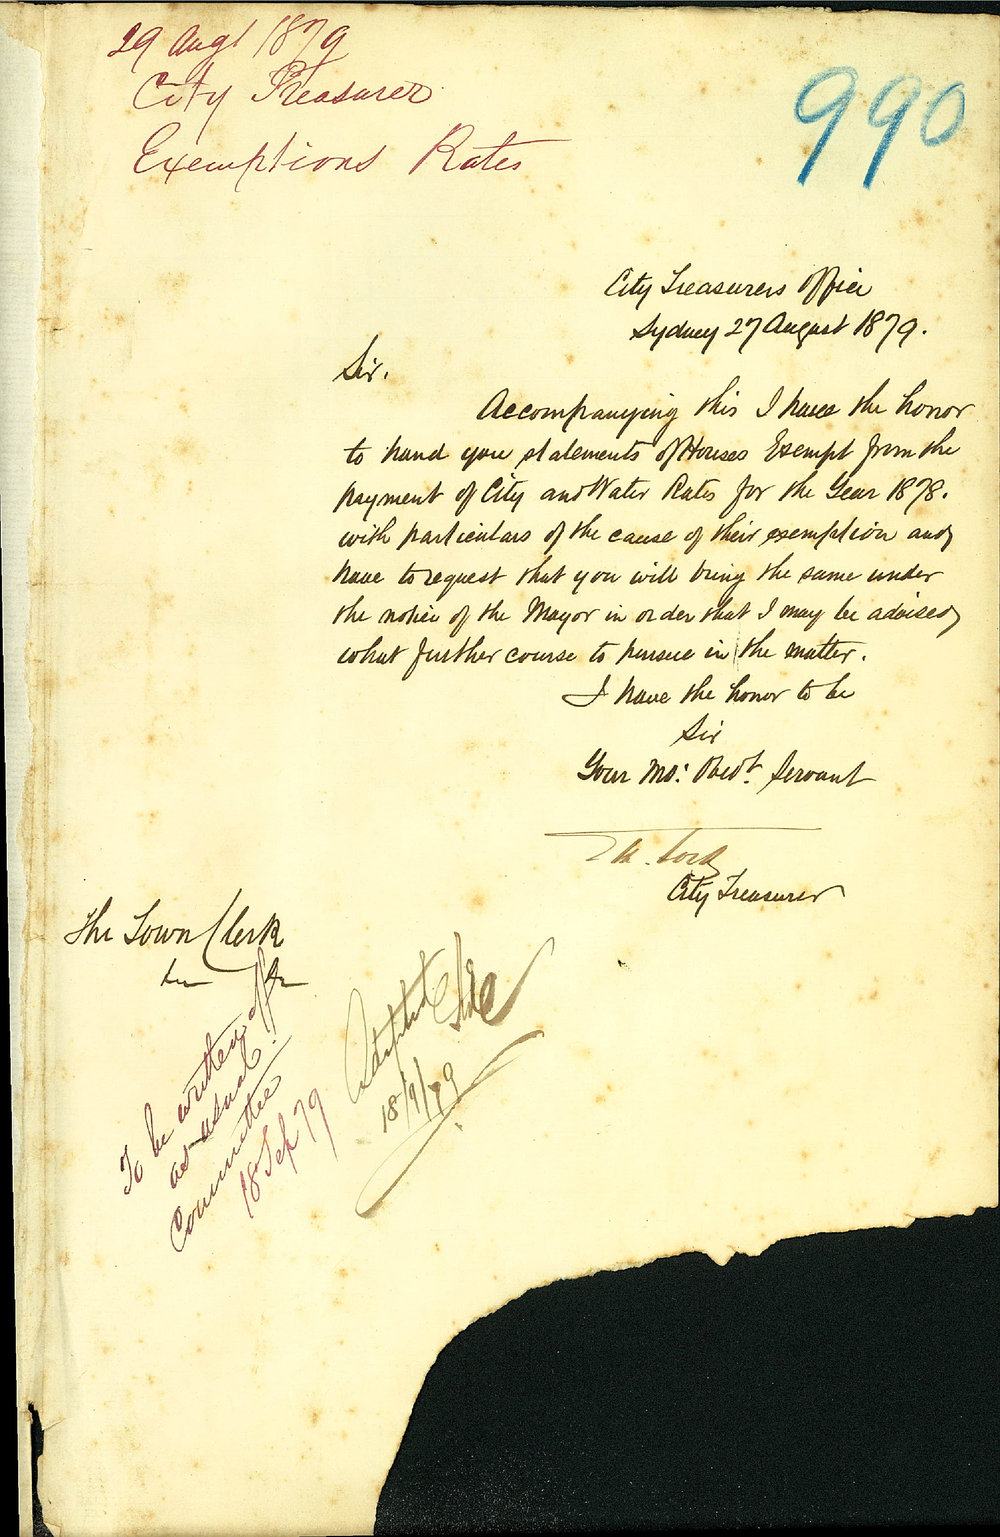 29 Augt 1879
City Treasurer
Exemptions Rates
990
City Treasurers Office
Sydney 27 August 1879.
Sir.
Accompanying this I have the honor
to hand you statements of Houses Exempt from the
payment of City and Water Rates for the Year 1878.
with particulars of the cause of their exemption and
have to request that you will bring the same under
the notice of the Mayor in order that I may be advised
what further course to pursue in the matter.
I have the honor to be
Sir
Your Mo: Obedt. Servant
City Treasurer
The Town Clerk
To be written off
as usual.
Committee
18 Sep 79
Adopted
18/9/79